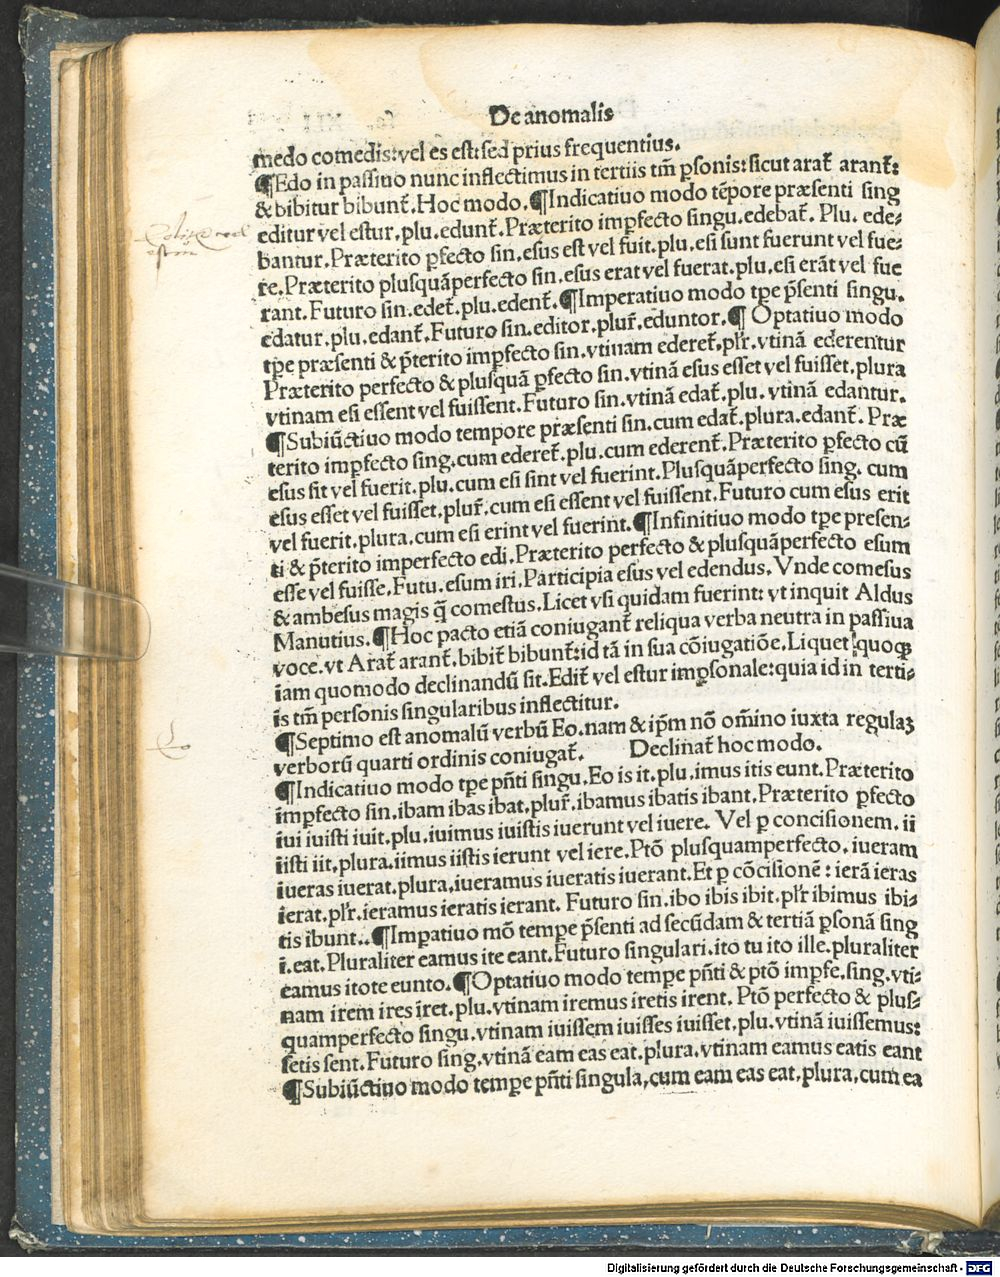 De anomalis
medo comedis: vel es est: sed prius frequentius.
¶Edo in passiuo nunc inflectimus in tertiis tm̄ ꝑsonis: sicut arat᷑ arant᷑:
& bibitur bibunt᷑. Hoc modo. ¶Indicatiuo modo tẽpore præsenti sing
editur vel estur. plu. edunt᷑. Præterito imꝑfecto singu. edebat᷑. Plu. ede⸗
bantur. Præterito ꝑfecto sin. esus est vel fuit. plu. esi sunt fuerunt vel fue⸗
re. Præterito plusquãperfecto sin. esus erat vel fuerat. plu. esi erãt vel fue
rant. Futuro sin. edet᷑. plu. edent᷑. ¶Imperatiuo modo tꝑe p̃senti singu.
edatur. plu. edant᷑. Futuro sin. editor. plur᷑. eduntor. ¶ Optatiuo modo
tꝑe præsenti & p̃terito imꝑfecto sin. vtinam ederet᷑. plr᷑. vtinã ederentur
Præterito perfecto & plusquã ꝑfecto sin. vtinã esus esset vel fuisset. plura
vtinam esi essent vel fuissent. Futuro sin. vtinã edat᷑. plu. vtinã edantur.
¶Subiũctiuo modo tempore præsenti sin. cum edat᷑. plura. edant᷑. Præ
terito imꝑfecto sing. cum ederet᷑. plu. cum ederent᷑. Præterito ꝑfecto cũ
esus sit vel fuerit. plu. cum esi sint vel fuerint. Plusquãperfecto sing. cum
esus esset vel fuisset. plur᷑. cum esi essent vel fuissent. Futuro cum esus erit
vel fuerit. plura. cum esi erint vel fuerint. ¶Infinitiuo modo tꝑe presen⸗
ti & p̃terito imperfecto edi. Præterito perfecto & plusquãperfecto esum
esse vel fuisse. Futu. esum iri. Participia esus vel edendus. Vnde comesus
& ambesus magis q̃ comestus. Licet vsi quidam fuerint: vt inquit Aldus
Manutius. ¶Hoc pacto etiã coniugant᷑ reliqua verba neutra in passiua
voce. vt Arat᷑ arant᷑. bibit᷑ bibunt᷑: id tã in sua cõiugatiõe. Liquet quoqꝫ
iam quomodo declinandũ sit. Edit᷑ vel estur imꝑsonale: quia id in terti⸗
is tm̄ personis singularibus inflectitur.
¶Septimo est anomalũ verbũ Eo. nam & ip̄m nõ om̃ino iuxta regulaꝝ
verborũ quarti ordinis coniugat᷑. Declinat᷑ hoc modo.
¶Indicatiuo modo tꝑe pñti singu. Eo is it. plu. imus itis eunt. Præterito
imꝑfecto sin. ibam ibas ibat. plur᷑. ibamus ibatis ibant. Præterito ꝑfecto
iui iuisti iuit. plu. iuimus iuistis iuerunt vel iuere. Vel ꝑ concisionem. ii
iisti iit. plura. iimus iistis ierunt vel iere. Ptõ plusquamperfecto. iueram
iueras iuerat. plura. iueramus iueratis iuerant. Et ꝑ cõcisionẽ: ierã ieras
ierat. plr᷑. ieramus ieratis ierant. Futuro sin. ibo ibis ibit. plr᷑ ibimus ibi⸗
tis ibunt.. ¶Imꝑatiuo mõ temꝑe p̃senti ad secũdam & tertiã ꝑsonã sing
i. eat. Pluraliter eamus ite eant. Futuro singulari. ito tu ito ille. pluraliter
eamus itote eunto. ¶Optatiuo modo temꝑe pñti & ptõ imꝑfe. sing. vti⸗
nam irem ires iret. plu. vtinam iremus iretis irent. Ptõ perfecto & plus⸗
quamperfecto singu. vtinam iuissem iuisses iuisset. plu. vtinã iuissemus:
setis sent. Futuro sing. vtinã eam eas eat. plura. vtinam eamus eatis eant
¶Subiũctiuo modo temꝑe pñti singula. cum eam eas eat. plura. cum ea
Eo
Digitalisierung gefördert durch die Deutsche Forschungsgemeinschaft - DFG